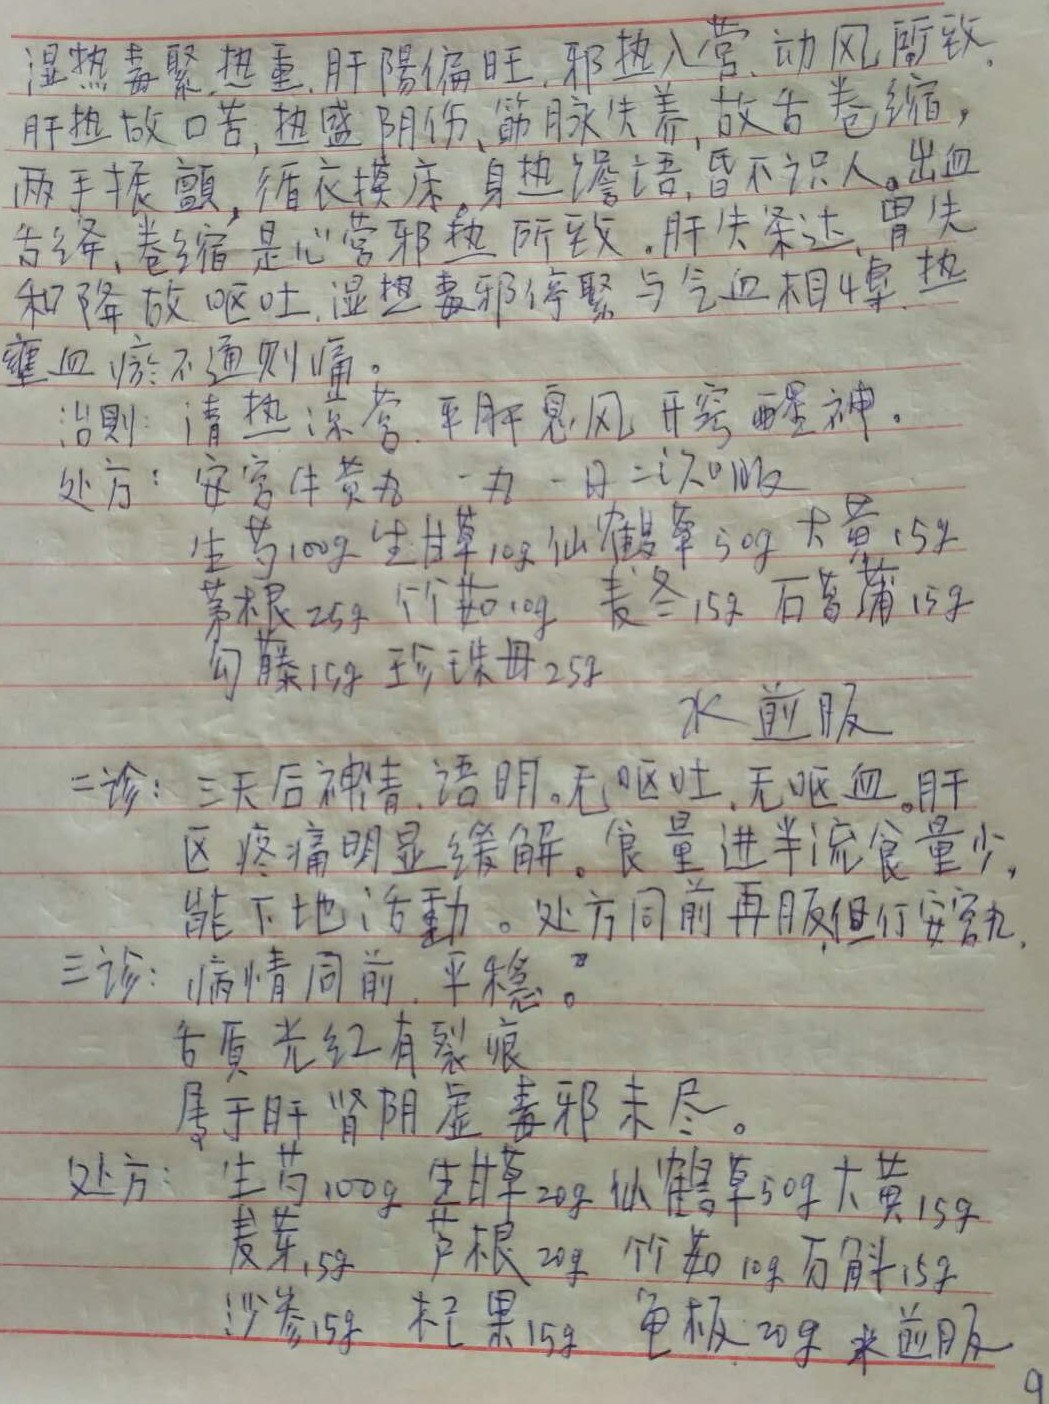 湿热毒緊,热重,肝陽偏旺,邪热入营、动风所致,
肝热故口苦,热盛阴伤、筋脉失养,故舌卷缩,
两手振颤,循衣摸床。身热譫语,昏不识人。出血
舌绛、卷缩是心营邪热所致。肝失条达、胃失
和降故呕吐,湿热毒邪停緊与气血相搏,热
壅血瘀不通则痛。
治則:清热凉营.平肝息风 开窍醒神。
处方:安宫牛黄丸 一丸 一日二次口服
生芍100g 生甘草10g 仙鶴草50g 大黄15g
茅根25g 竹茹10g 麦冬15g 石菖蒲15g
勾藤15g 珍珠母25g
水煎服
二诊:三天后神清.语明。无呕吐、无呕血。肝
区疼痛明显缓解。食量进半流食量少,
能下地活動。处方同前再服,但停安宫丸.
三诊:病情同前.平穩。
舌质光红有裂痕
属于肝肾阴虚毒邪未尽。
处方: 生芍100g 生甘草20g 仙鶴草50g 大黄15g
麦芽15g 芦根20g 竹茹10g 石斛15g
沙参15g 杞果15g 龟板20g 水煎服
9